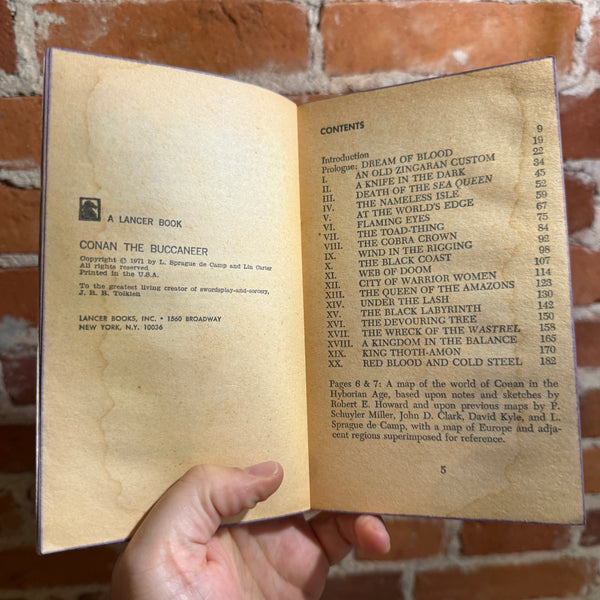 A LANCER BOOK
CONAN THE BUCCANEER
Copyright © 1971 by L. Sprague de Camp and Lin Carter
All rights reserved
Printed in the U.S.A.
To the greatest living creator of swordsplay-and-sorcery,
J. R. R. Tolkien
LANCER BOOKS, INC. • 1560 BROADWAY
NEW YORK, N.Y. 10036
CONTENTS
Introduction 9
Prologue: DREAM OF BLOOD 19
I. AN OLD ZINGARAN CUSTOM 22
II. A KNIFE IN THE DARK 34
III. DEATH OF THE SEA QUEEN 45
IV. THE NAMELESS ISLE 52
V. AT THE WORLD'S EDGE 59
VI. FLAMING EYES 67
VII. THE TOAD-THING 75
VIII. THE COBRA CROWN 84
IX. WIND IN THE RIGGING 92
X. THE BLACK COAST 98
XI. WEB OF DOOM 107
XII. CITY OF WARRIOR WOMEN 114
XIII. THE QUEEN OF THE AMAZONS 123
XIV. UNDER THE LASH 130
XV. THE BLACK LABYRINTH 142
XVI. THE DEVOURING TREE 150
XVII. THE WRECK OF THE WASTREL 158
XVIII. A KINGDOM IN THE BALANCE 165
XIX. KING THOTH-AMON 170
XX. RED BLOOD AND COLD STEEL 182
Pages 6 & 7: A map of the world of Conan in the
Hyborian Age, based upon notes and sketches by
Robert E. Howard and upon previous maps by P.
Schuyler Miller, John D. Clark, David Kyle, and L.
Sprague de Camp, with a map of Europe and adja-
cent regions superimposed for reference.
5